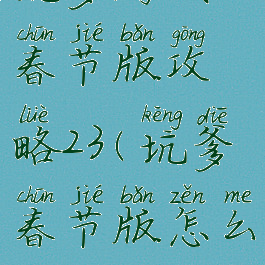 chūn jié bǎn gōng
春节版攻
lüè kēng diē
略23(坑爹
chūn jié bǎn zěn me
春节版怎么